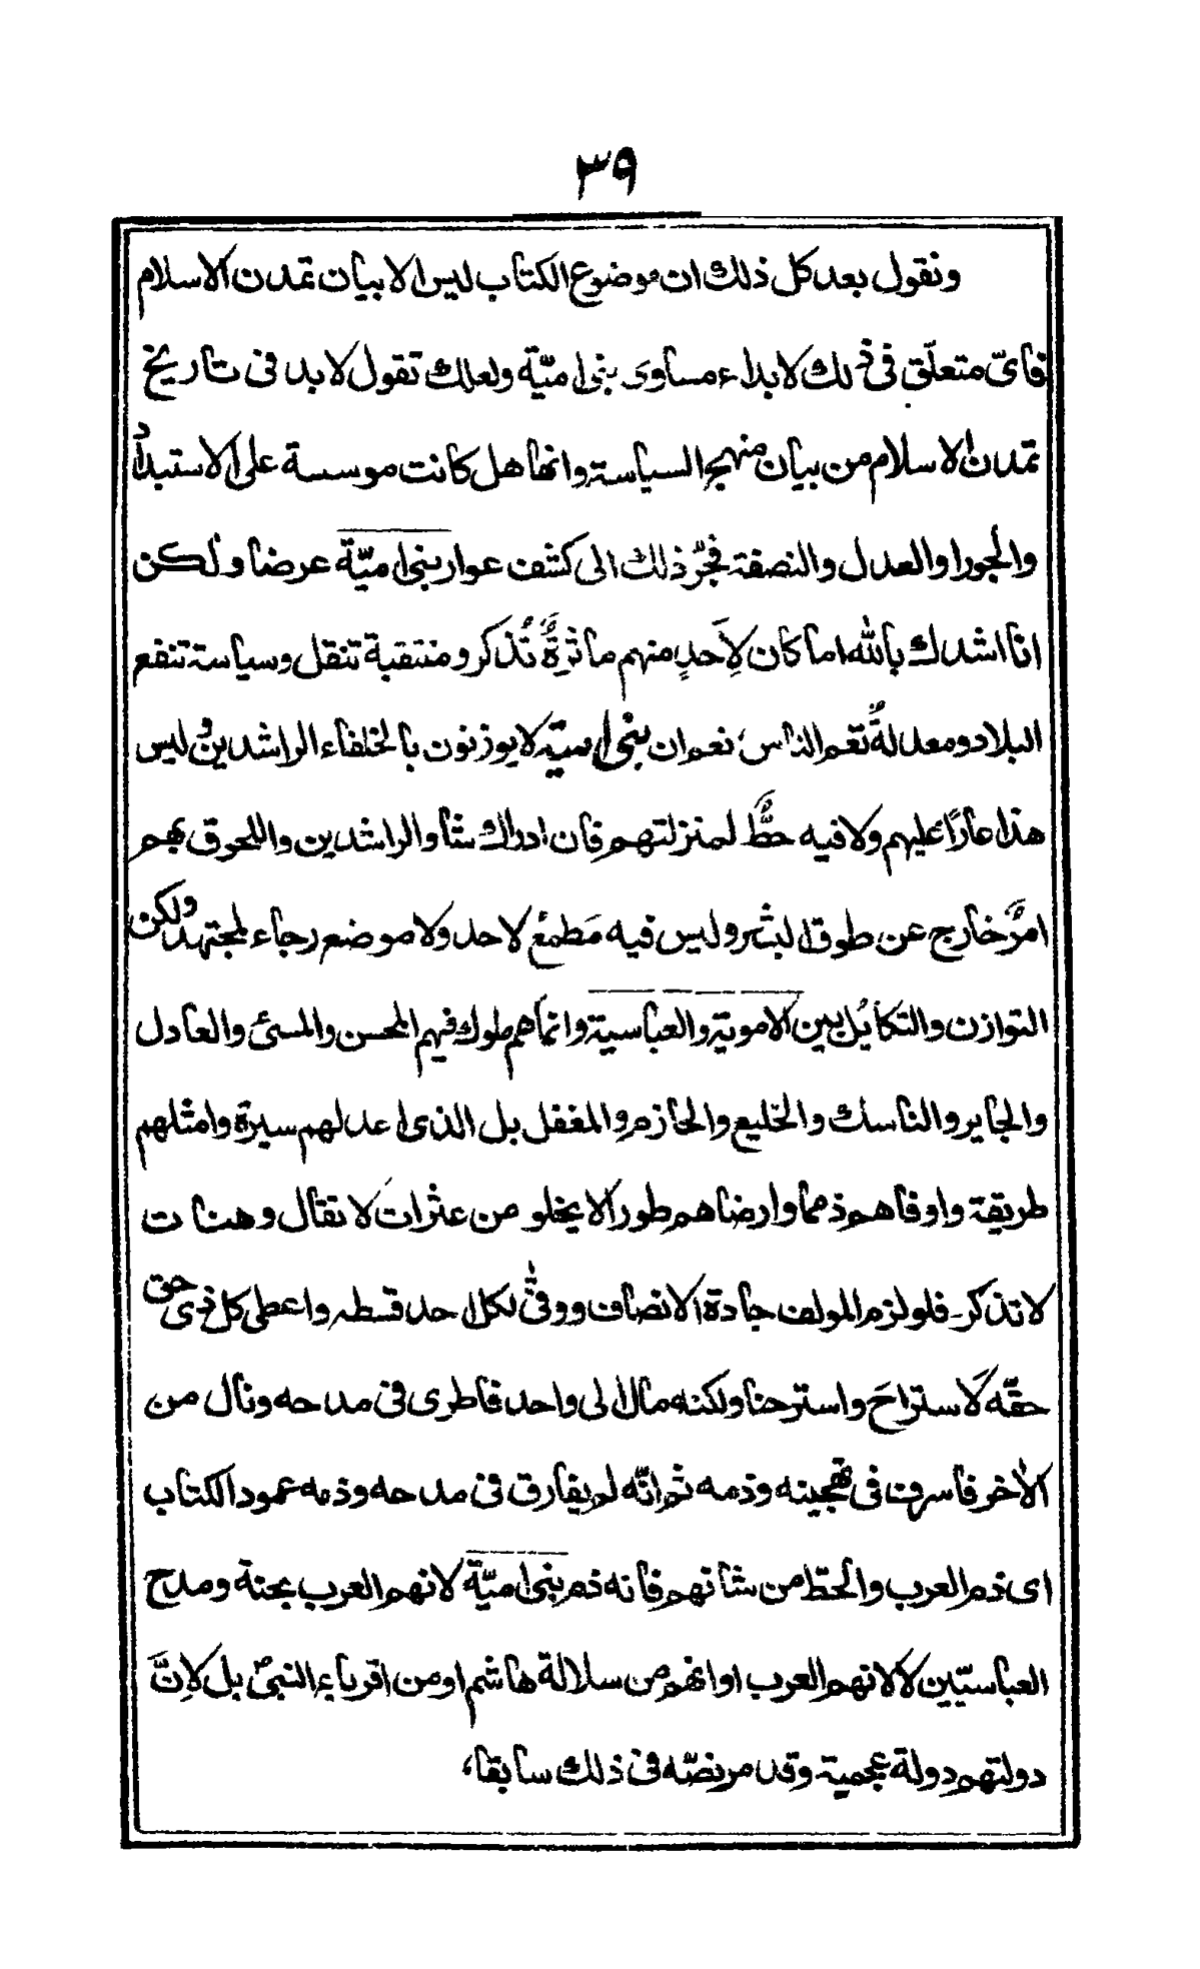 ٣٩
ونقول بعد كل ذلك ان موضوع الكتاب ليس الا بيان تمدن الاسلام
فاىّ متعلّق فى ذلك لابداء مساوى بنى اميّة ولعلك تقول لابد فى تاريخ
تمدن الاسلام من بيان منهج السياسة وانها هل كانت موسسة على الاستبداد
والجور او العدل والنصفة فجرّ ذلك الى كشف عوار بنى اميّة عرضا ولكن
انا انشدك بالله اما كان لِاَحدٍ منهم ماثرةٌ تُذكر ومنتقبة تنقل وسياسة تنفع
البلاد ومعدلةٌ تعم الناس؛ نعم ان بنى امية لا يوزنون بالخلفاء الراشدين وليس
هذا عارًا عليهم ولا فيه حطٌّ لمنزلتهم فان ادراك شأو الراشدين واللحوق بهم
امرٌ خارج عن طوق البشر وليس فيه مَطمعٌ لاحد ولا موضع رجاء لمجتهد ولكن
التوازن والتكايُل بين الاموية والعباسية وانما هم ملوك فيهم المحسن والمسئ والعادل
والجاير والناسك والخليع والحازم والمغفل بل الذى اعدلهم سيرة وامثلهم
طريقة واوفاهم ذمما وارضاهم طورا لا يخلو من عثرات لا تقال وهنات
لا تذكر۔ فلو لزم المولف جادة الانصاف ووفّٰى لكل احد قسطه واعطى كل ذى حق
حقّه لَاستراحَ واسترحنا ولكنه مال الى واحد فاطرى فى مدحه ونال من
الاٰخر فاسرف فى تهجينه وذمه ثم انّه لم يفارق فى مدحه وذمه عمود الكتاب
اى ذم العرب والحطّ من شانهم فانه ذم بنى اميّة لانهم العرب بحتة ومدح
العباسيّين لا لانهم العرب او انهم من سلالة هاشم او من اقرباء النبىؐ بل لِانَّ
دولتهم دولة عجمية وقد مر نصّه فى ذلك سابقا،